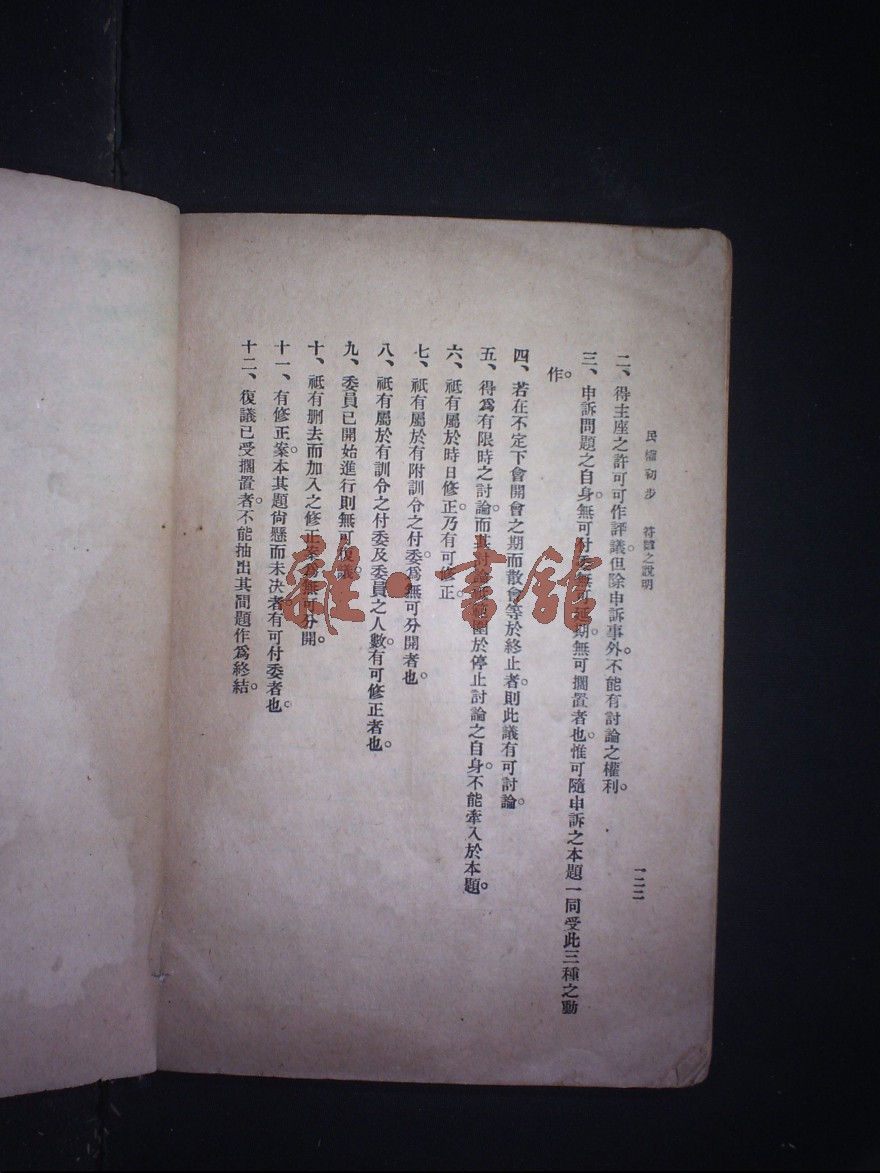 民權初步　符號之說明
一二二
二、得主座之許可可作評議。但除申訴事外。不能有討論之權利。
三、申訴問題之自身。無可付委。無可延期。無可擱置者也。惟可隨申訴之本題一同受此三種之動
作。
四、若在不定下會開會之期而散會等於終止者。則此議有可討論。
五、得爲有限時之討論。而其討論祇範圍於停止討論之自身。不能牽入於本題。
六、祗有屬於時日修正。乃有可修正。
七、祗有屬於有附訓令之付委。爲無可分開者也。
八、祗有屬於有訓令之付委及委員之人數。有可修正者也。
九、委員已開始進行則無可復議。
十、祗有删去而加入之修正案爲無可分開。
十一、有修正案。本其題尙懸而未决者。有可付委者也。
十二、復議已受擱置者。不能抽出其問題作爲終結。
雜·書館